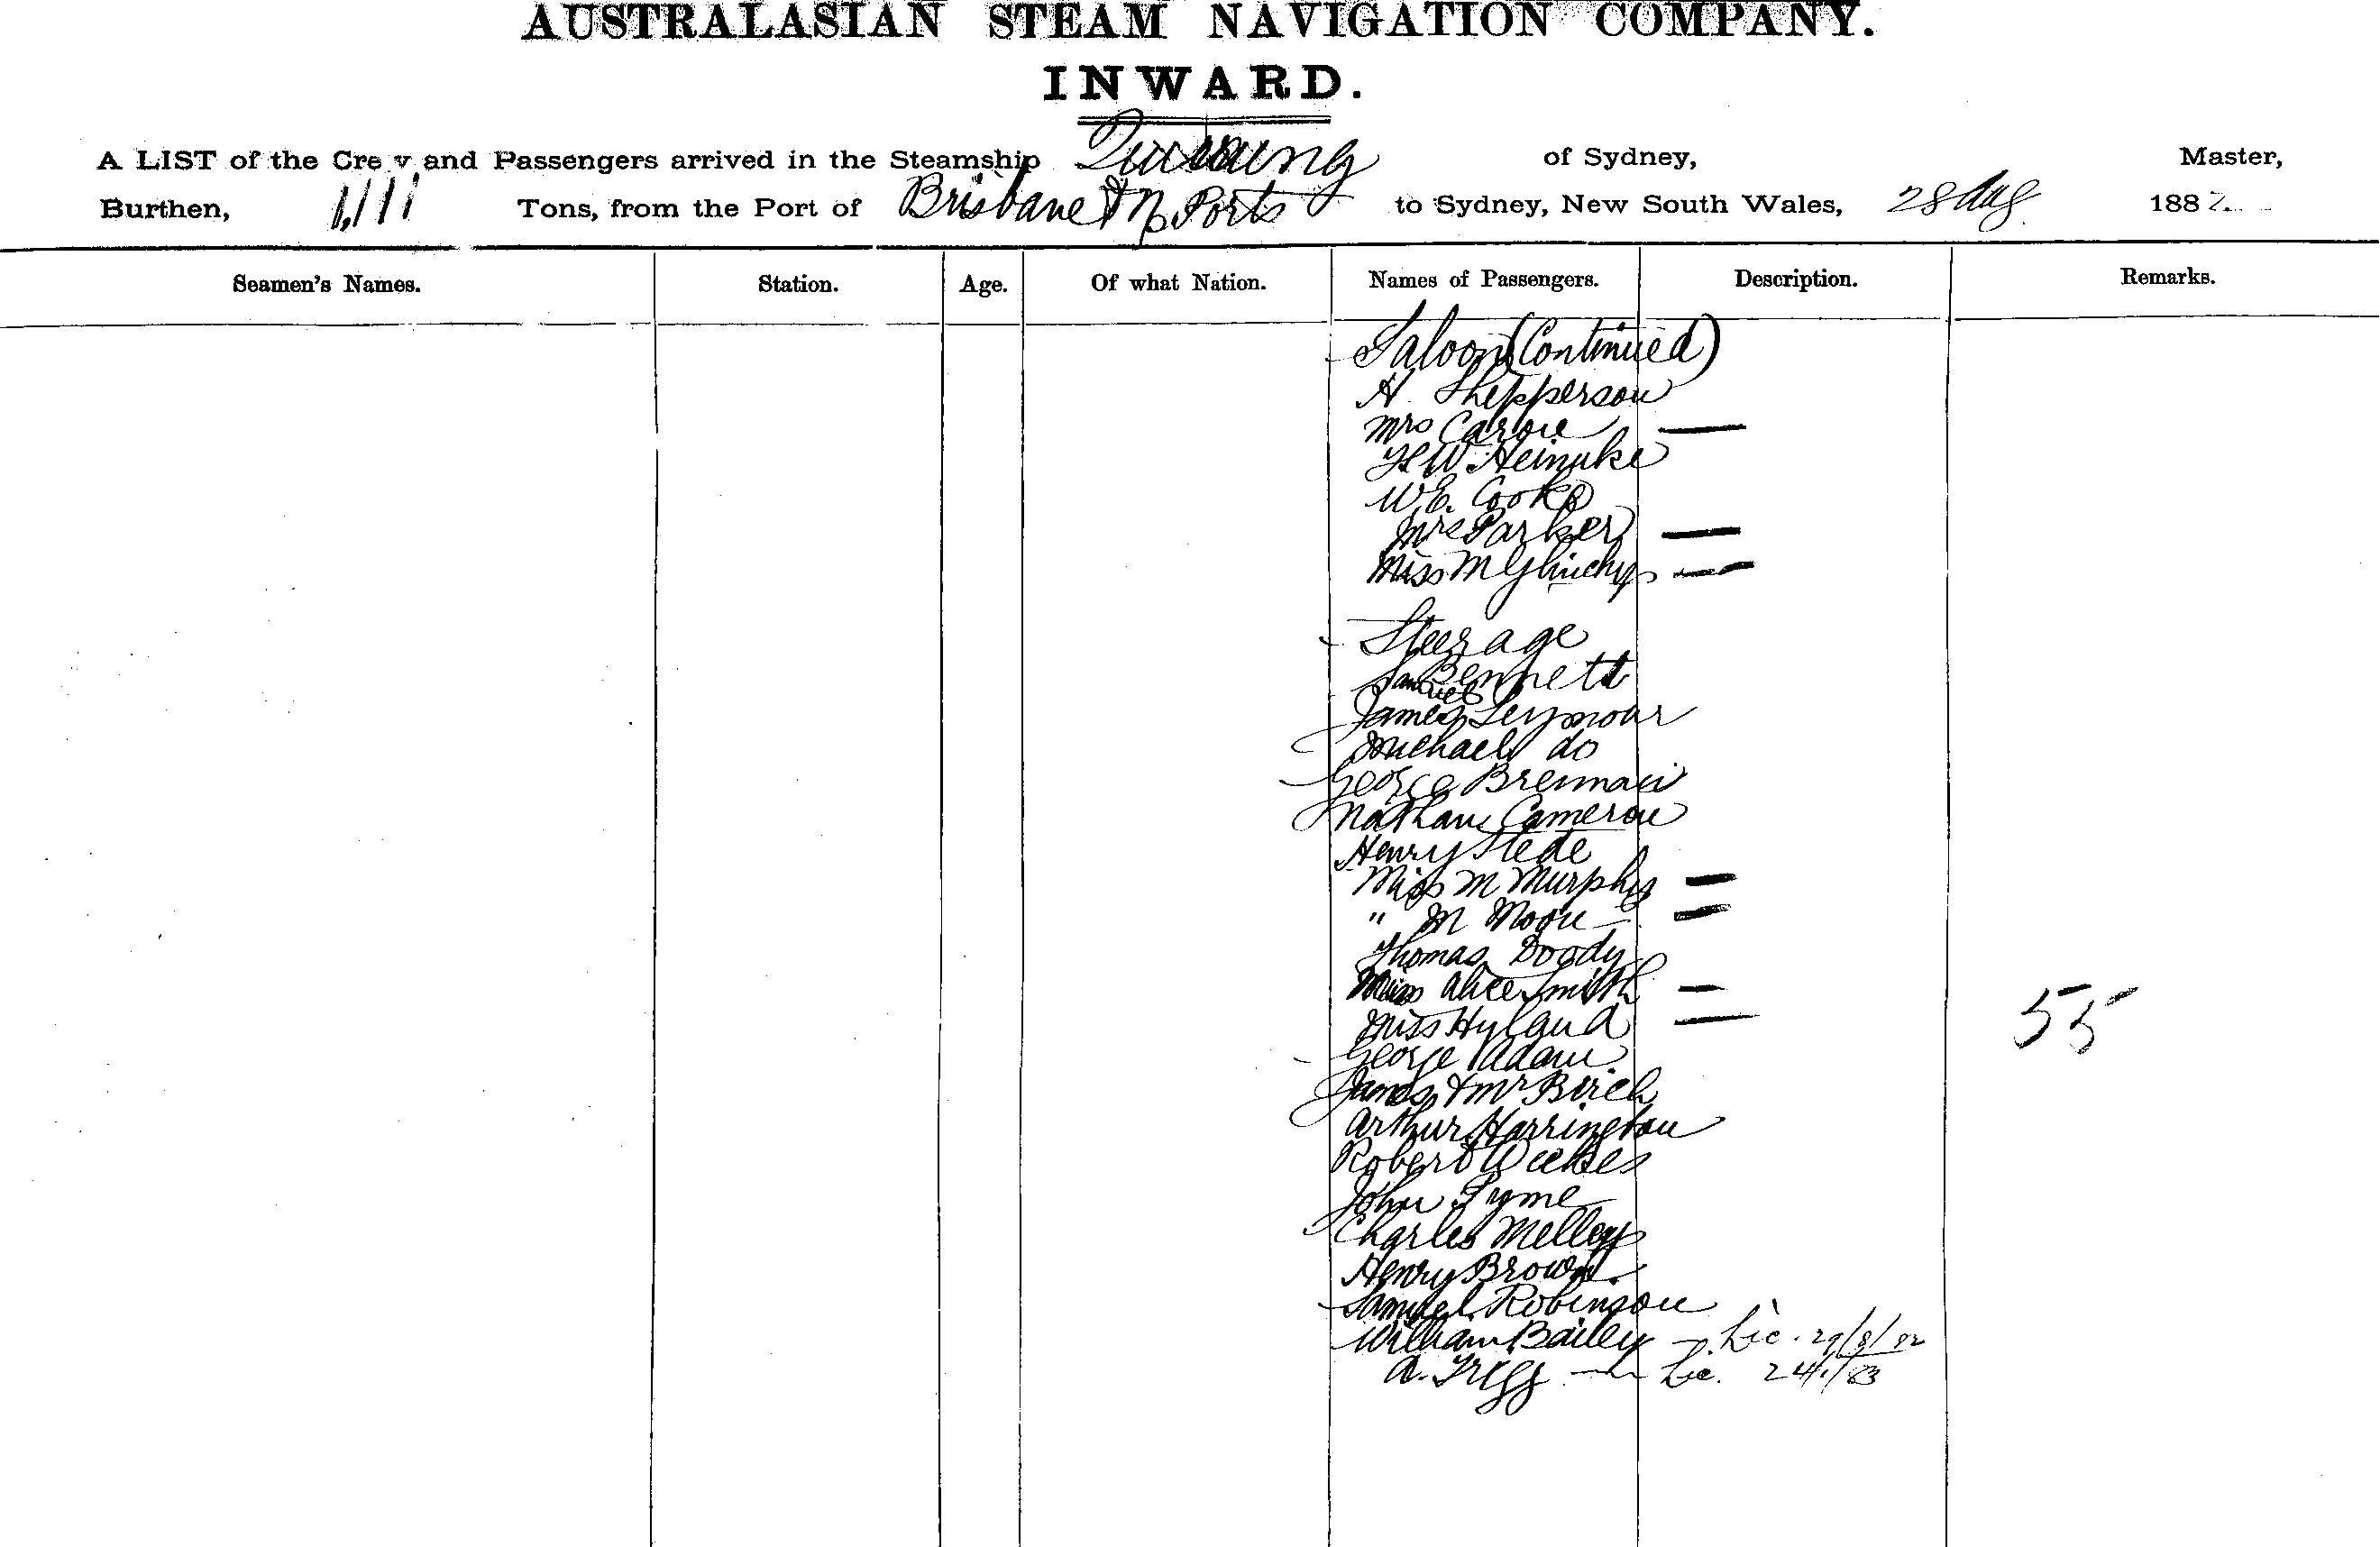 AUSTRALASIAN STEAM NAVIGATION COMPANY.
INWARD.
A LIST of the Crew and Passengers arrived in the Steamship of Sydney, Master,
Burthen, 1,111 Tons, from the Port of Brisbane & Ports to Sydney, New South Wales, 28 Aug 1882
Seamen's Names. Station. Age. Of what Nation. Names of Passengers. Description. Remarks.
Saloon (Continued)
H. Shepperson
Mrs
W. Heinuke
W E. Cooke
Mrs Parker
Miss
Steerage
Samuel Bennett
James Seymour
Michael do
George Brennan
Nathan Cameron
Henry Stede
Miss M Murphy
" M Moore
Thomas Doody
Miss Alice Smith
Miss Hyland
George Adam
55
James & Mr Birch
Arthur Harrington
Robert Weekes
John Pyme
Charles Melley
Henry Brown
Samuel Robinson
William Bailey — Lic. 29/8/82
A. Trigg — Lic. 24/1/83